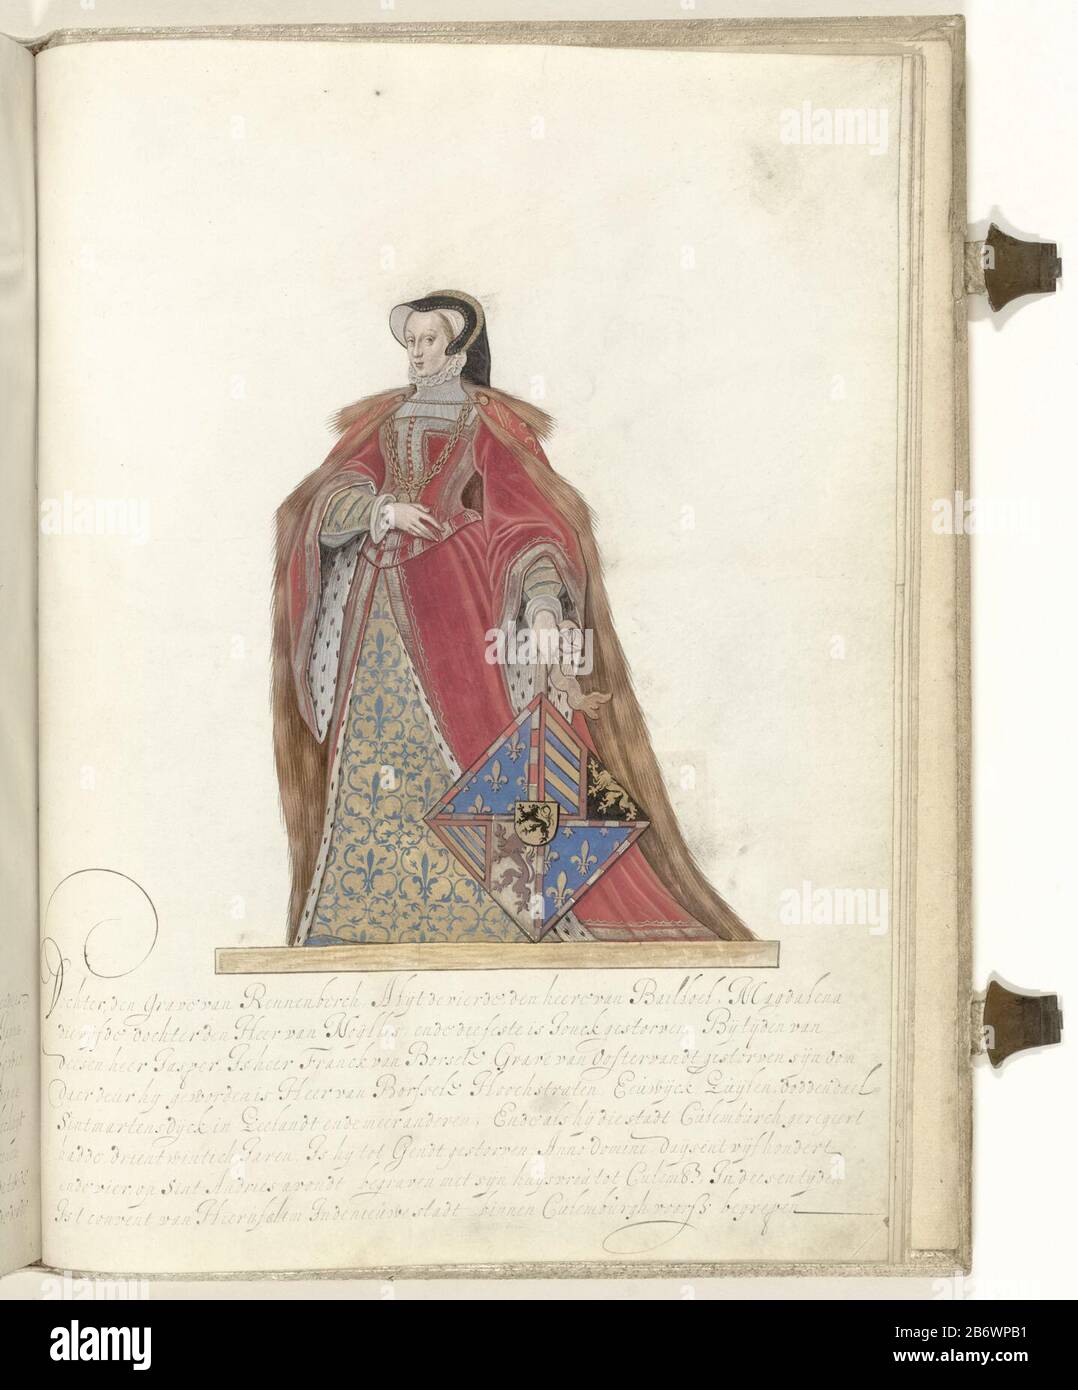 dochter, den Grave van Rennenberch, Alyt de vierde den heere van Bailloel, Magdalena
die vyfde dochter den Heer van Noyllis ende de seste is Jonck gestorven. By tyden van
desen heer Jasper, Is heer Franck van Borsele Grave van Oostervandt gestorven syn oom
Daer deur hy geworden is Heer van Borssele Hoochstraten, Eeuwyck Zuylen, Doddendael
Sint martensdyck in Zeelandt ende meer anderen, Ende als hy die stadt Culemburch geregeert
hadde drientwintich Jaren, Is hy tot Gendt gestorven, Anno domini Duysent vyf hondert
ende vier, op Sint Andries avondt begraven met syn huysvrou tot Culemb. In desen tyden
Is t convent van Hierusalem In de nieuwe stadt binnen Culemburgh voorss begrepen
alamy
alamy
alamy
alamy
alamy
alamy
alamy
Image ID: 2B6WPB1
www.alamy.com